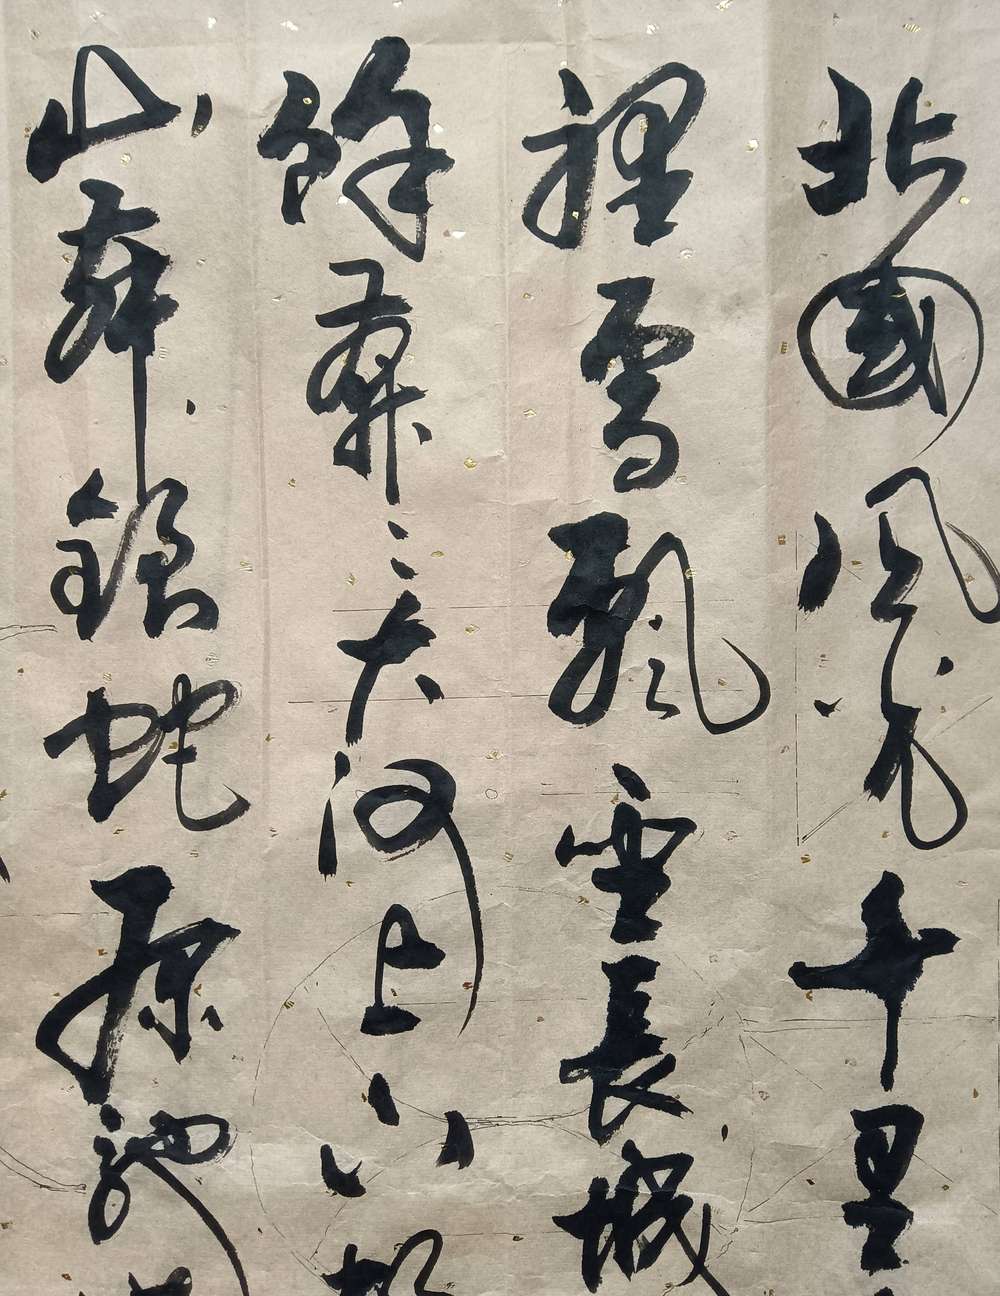 北國風光千里
裡雪飄望長城
餘莽〻大河上下
山舞銀蛇原馳